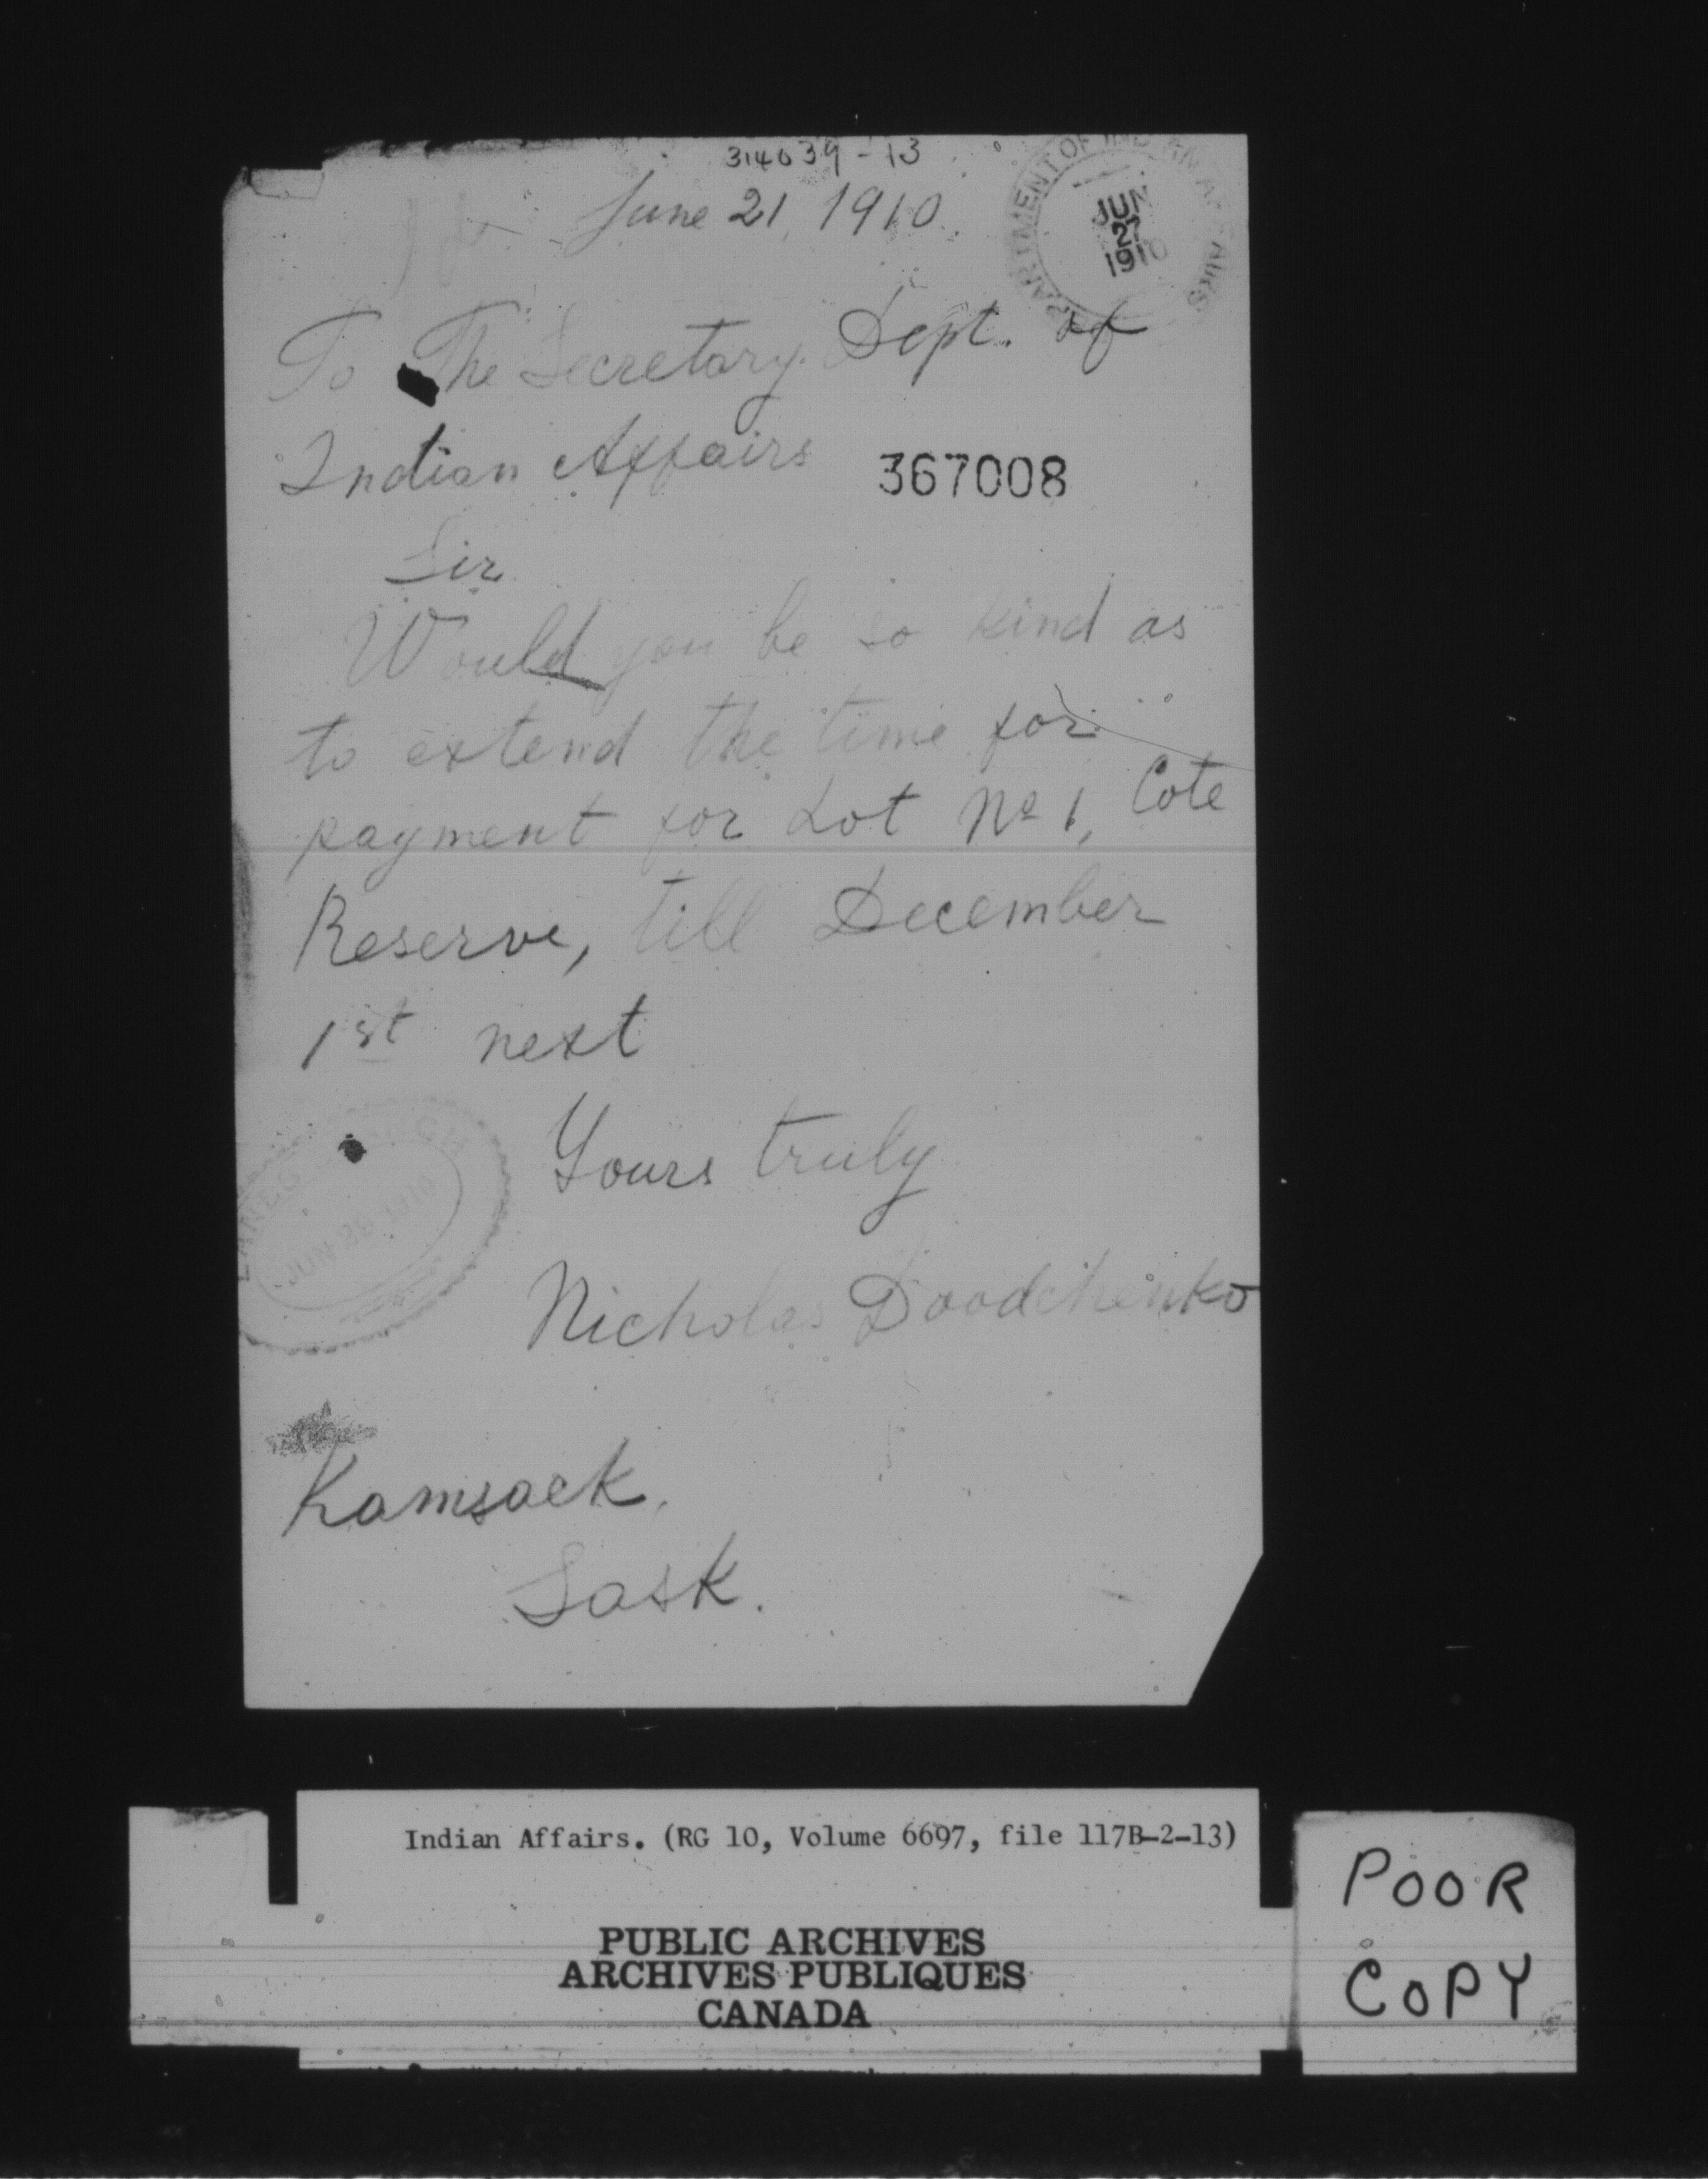 314639-13
June 21, 1910.
DEPARTMENT OF INDIAN AFFAIRS
JUN
27
1910
To The Secretary. Dept. of
Indian Affairs
367008
Sir
Would you be so kind as
to extend the time for
payment for Lot No 1, Cote
Reserve, till December
1st next
Yours truly
JUN 28 1910
Nicholas Doodchenko
Kamsack,
Sask.
Indian Affairs. (RG 10, Volume 6697, file 117B-2-13)
PUBLIC ARCHIVES
ARCHIVES PUBLIQUES
CANADA
POOR
COPY